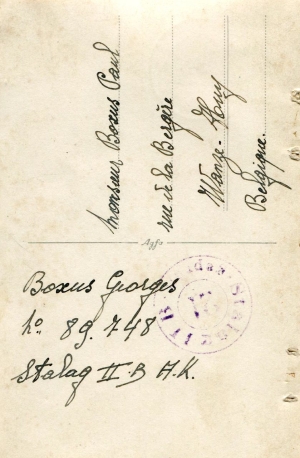 Monsieur Boxus Paul
rue de la Bergère
Wanze - Huy
Belgique.
Agfa
Boxus Georges
no. 89.748
Stalag II.B A.K.
Stalag II B